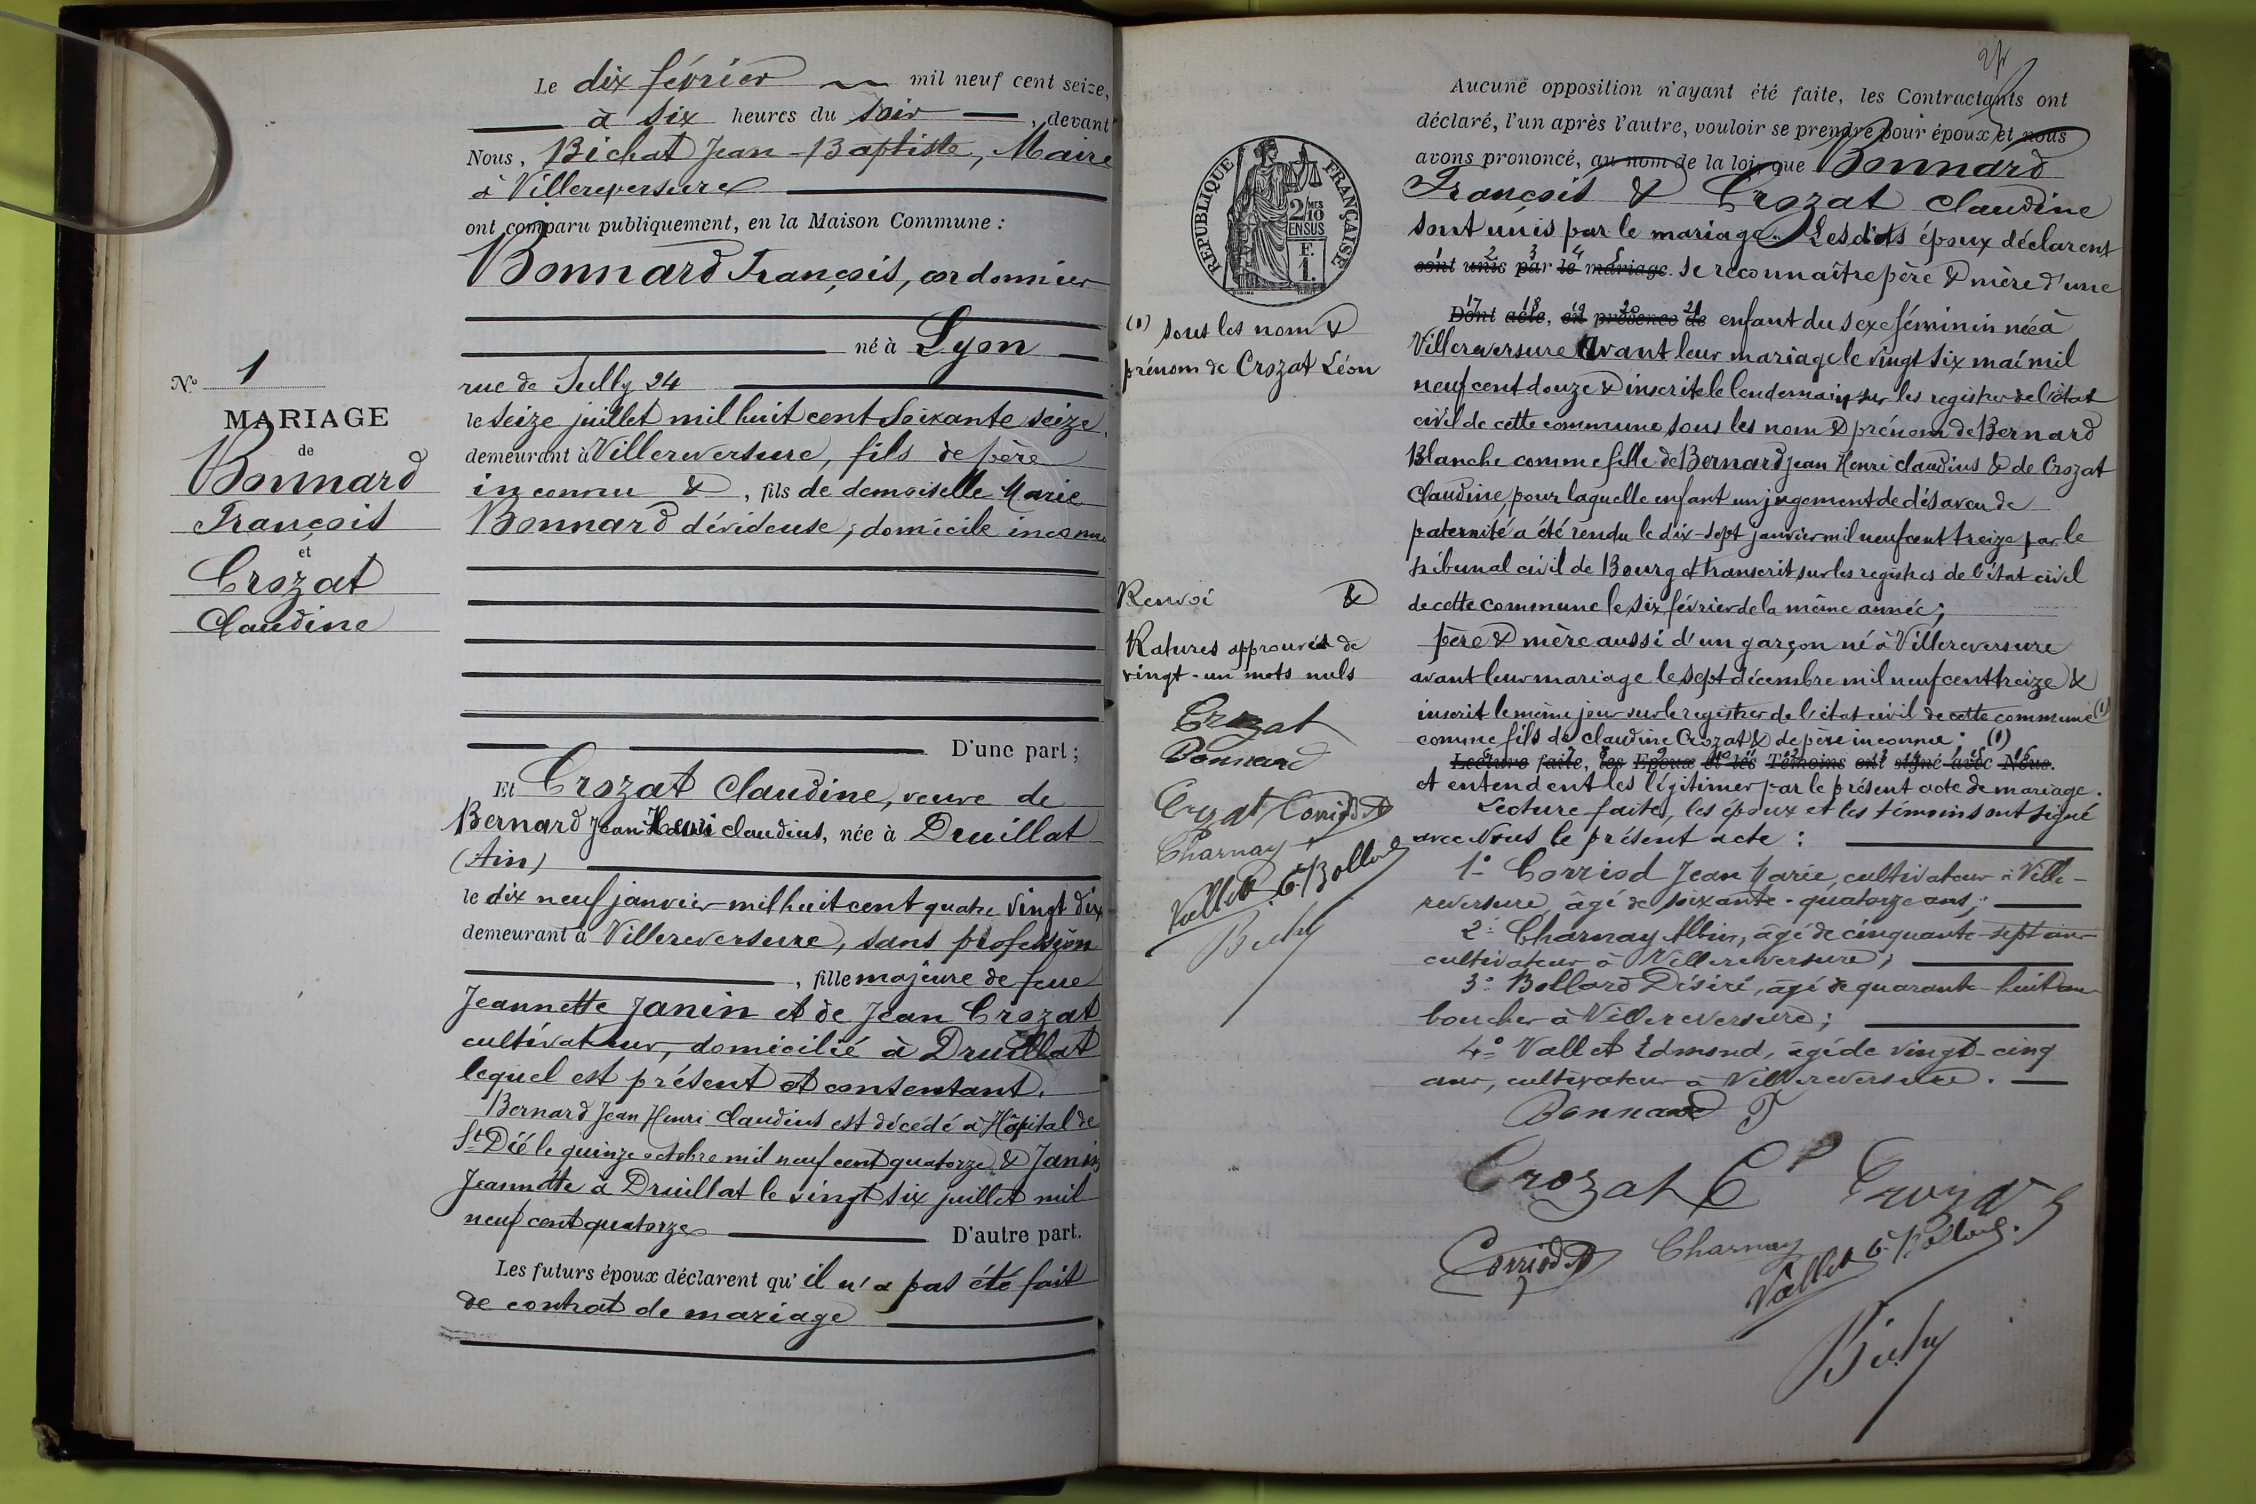 Le dix février mil neuf cent seize,
à six heures du soir, devant
Nous, Bichat Jean-Baptiste, Maire
à Villereversure
ont comparu publiquement, en la Maison Commune :
Bonnard François, cordonnier
né à Lyon
rue de Sully 24
le seize juillet mil huit cent soixante seize,
demeurant à Villereversure, fils de père
inconnu &, fils de demoiselle Marie
Bonnard dévideuse, domicile inconnu
D'une part ;
Et Crozat Claudine, veuve de
Bernard Jean Henri Claudius, née à Druillat
(Ain)
le dix neuf janvier mil huit cent quatre vingt dix
demeurant à Villereversure, sans profession
, fille majeure de feue
Jeannette Janin et de Jean Crozat
cultivateur, domicilié à Druillat
lequel est présent et consentant.
Bernard Jean Henri Claudius est décédé à Hôpital de
St Dié le quinze octobre mil neuf cent quatorze & Janin
Jeannette à Druillat le vingt six juillet mil
neuf cent quatorze D'autre part.
Les futurs époux déclarent qu'il n'a pas été fait
de contrat de mariage
No 1
MARIAGE
de
Bonnard
François
et
Crozat
Claudine
Aucune opposition n'ayant été faite, les Contractants ont
déclaré, l'un après l'autre, vouloir se prendre pour époux et nous
avons prononcé, au nom de la loi, que Bonnard
François & Crozat Claudine
sont unis par le mariage. Lesdits époux déclarent
1 2 3 4 5
sont unis par le mariage. se reconnaître père & mère d'une
17 18 19 20 21
Dont acte, en présence de enfant du sexe féminin née à
Villereversure avant leur mariage le vingt six mai mil
neuf cent douze & inscrite le lendemain sur les registres de l'état
civil de cette commune sous les nom & prénom de Bernard
Blanche comme fille de Bernard Jean Henri Claudius & de Crozat
Claudine, pour laquelle enfant un jugement de désaveu de
paternité a été rendu le dix-sept janvier mil neuf cent treize par le
tribunal civil de Bourg et transcrit sur les registres de l'état civil
de cette commune le six février de la même année ;
père & mère aussi d'un garçon né à Villereversure
avant leur mariage le sept décembre mil neuf cent treize &
inscrit le même jour sur le registre de l'état civil de cette commune (1)
comme fils de Claudine Crozat & de père inconnu. (1)
6 7 8 9 10 11 12 13 14 15 16
Lecture faite, les Epoux et les Témoins ont signé avec Nous.
et entendent les légitimer par le présent acte de mariage.
Lecture faite, les époux et les témoins ont signé
avec Nous le présent acte :
1° Corriod Jean Marie, cultivateur à Ville-
reversure, âgé de soixante-quatorze ans ;
2° Charnay Albin, âgé de cinquante-sept ans
cultivateur à Villereversure ;
3° Bollard Désiré, âgé de quarante-huit ans
boucher à Villereversure ;
4° Vallet Edmond, âgé de vingt-cinq
ans, cultivateur à Villereversure.
Bonnard F
Crozat C Crozat
Corriod Charnay Vallet E. Bollard
Bichat
RÉPUBLIQUE FRANÇAISE
2/10 MES
EN SUS
F.
1.
(1) sous les nom &
prénom de Crozat Léon
Renvoi &
Ratures approuvées de
vingt-un mots nuls
Crozat
Bonnard
Crozat Corriod
Charnay
Vallet E. Bollard
Bichat